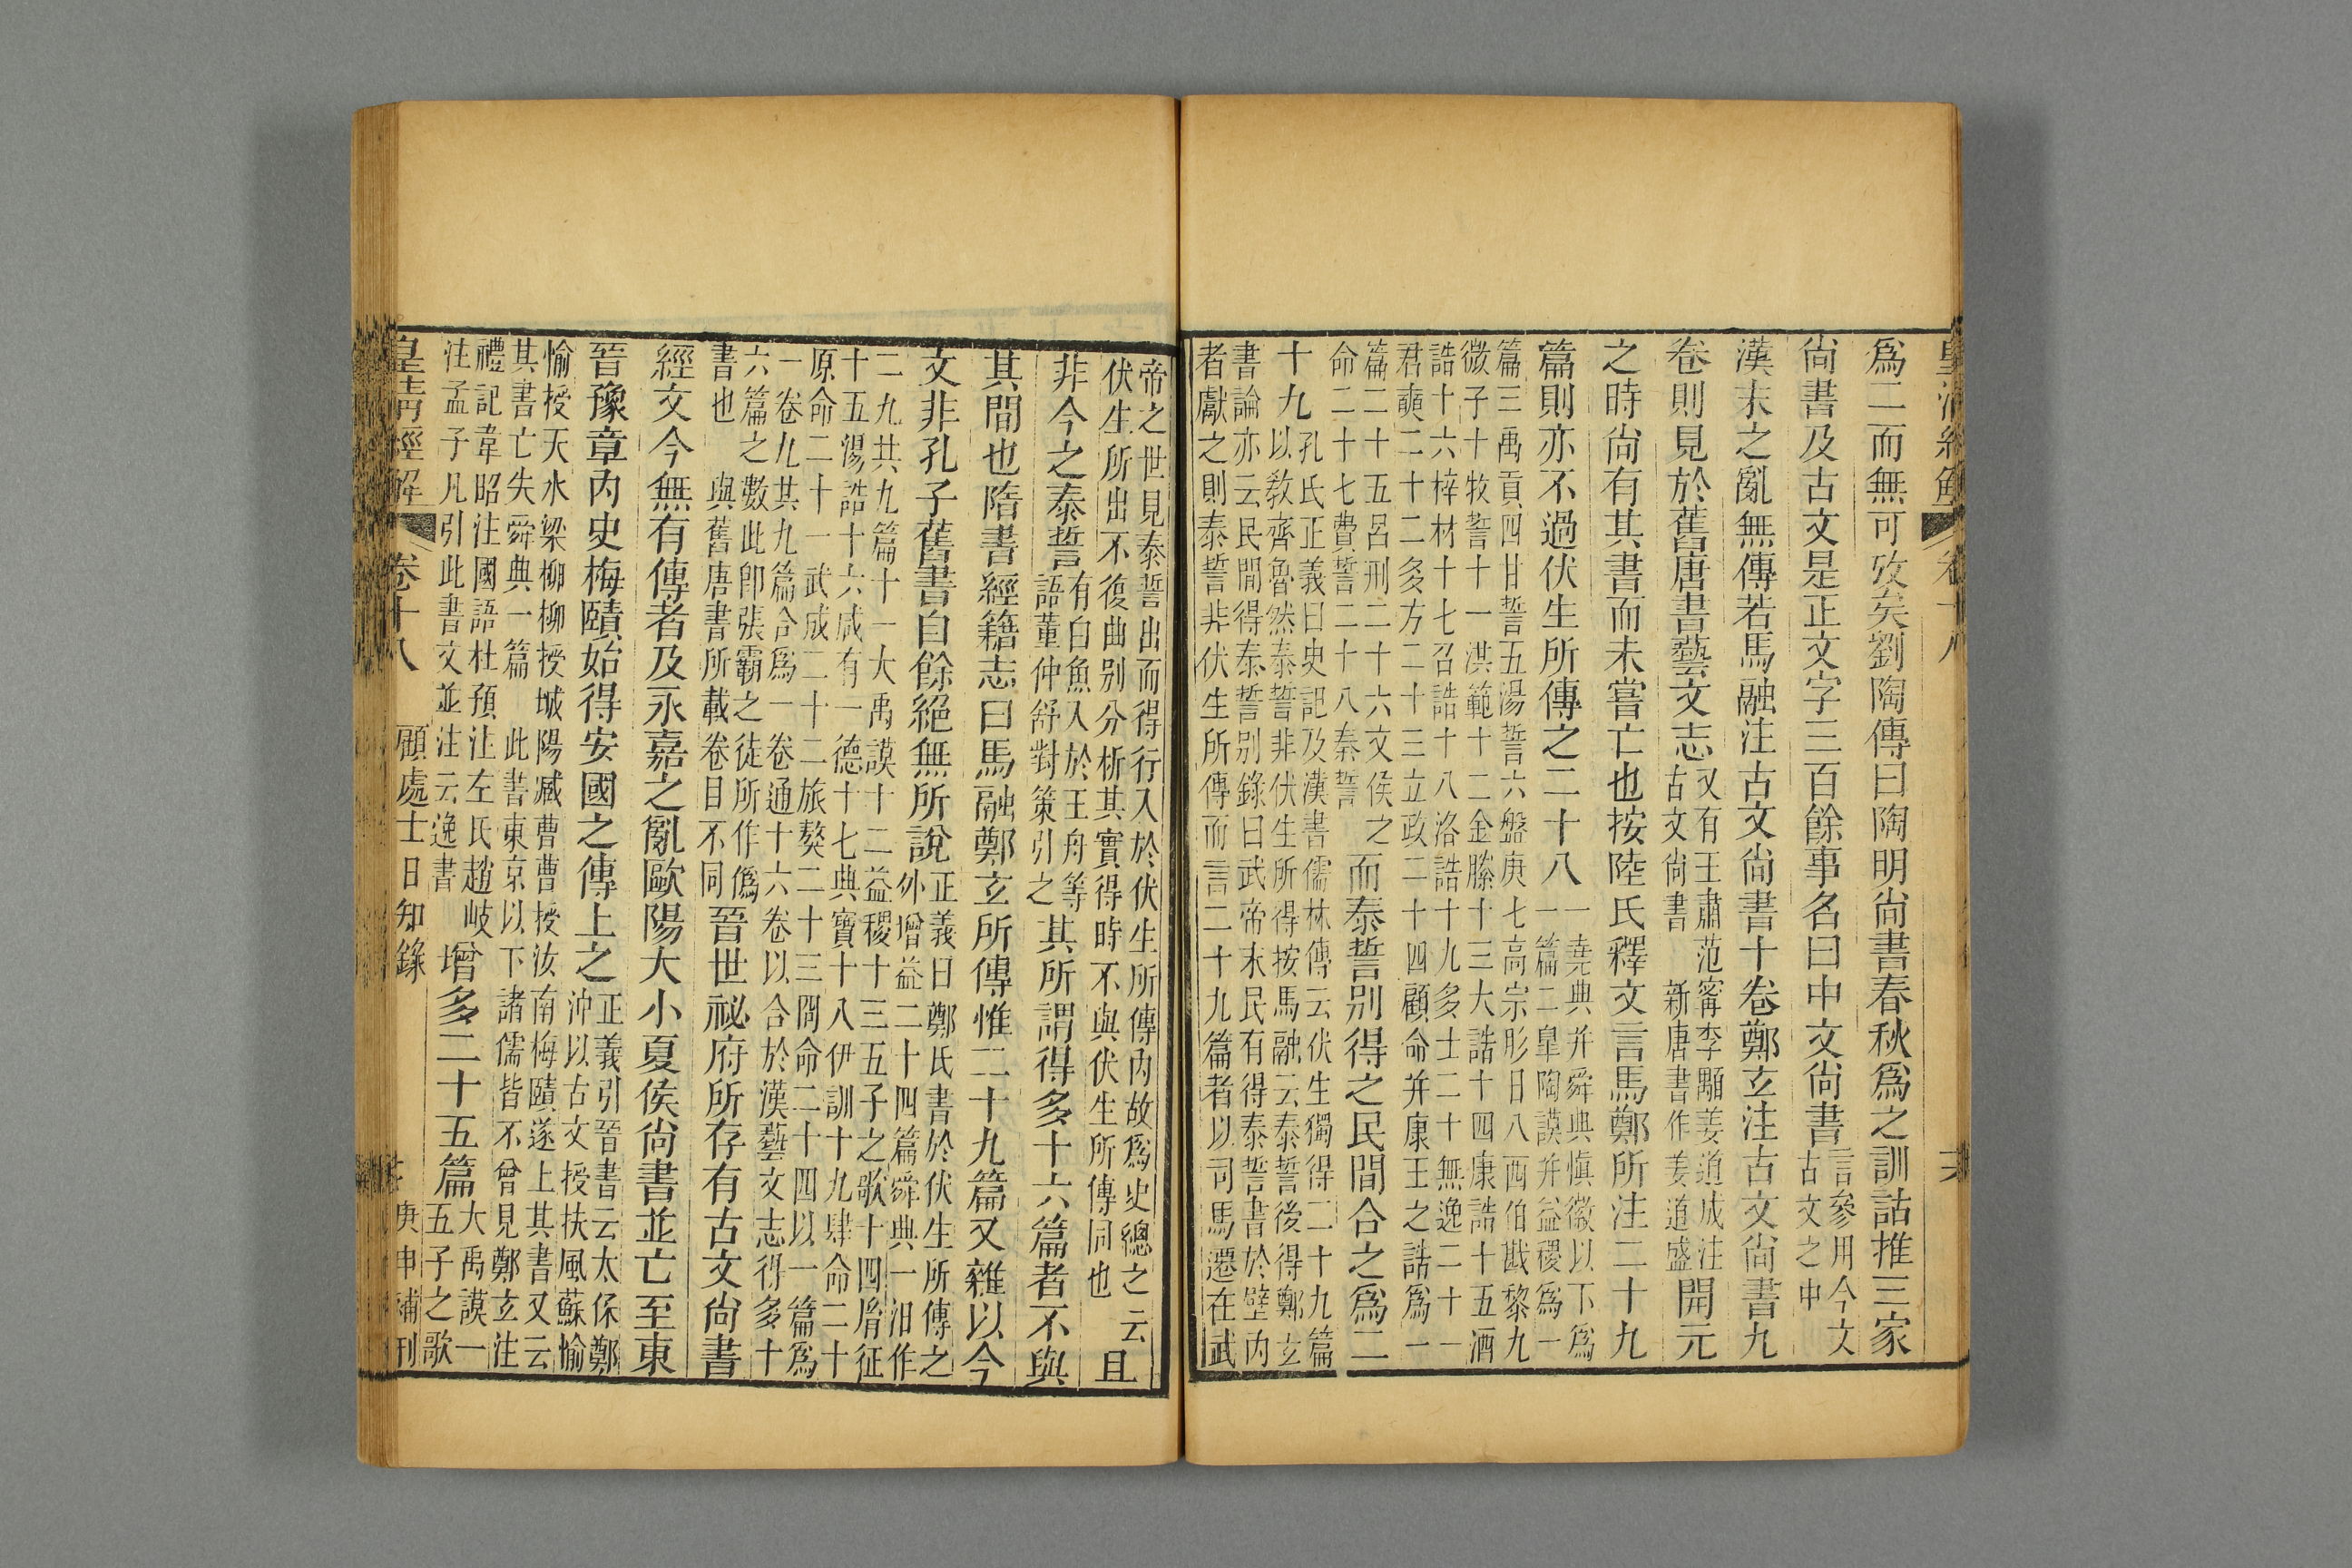 皇清經解 卷十八
爲二而無可攷矣劉陶傳曰陶明尚書春秋爲之訓詁推三家
尚書及古文是正文字三百餘事名曰中文尚書
言參用今文
古文之中
漢末之亂無傳若馬融注古文尚書十卷鄭玄注古文尚書九
卷則見於舊唐書藝文志
又有王肅范甯李顒姜道成注
古文尚書 新唐書作姜道盛
開元
之時尚有其書而未嘗亡也按陸氏釋文言馬鄭所注二十九
篇則亦不過伏生所傳之二十八
一堯典并舜典愼徽以下爲
一篇二皋陶謨并益稷爲一
篇三禹貢四甘誓五湯誓六盤庚七高宗肜日八西伯戡黎九
微子十牧誓十一洪範十二金縢十三大誥十四康誥十五酒
誥十六梓材十七召誥十八洛誥十九多士二十無逸二十一
君奭二十二多方二十三立政二十四顧命并康王之誥爲一
篇二十五呂刑二十六文侯之
命二十七費誓二十八秦誓
而泰誓別得之民間合之爲二
十九
孔氏正義曰史記及漢書儒林傳云伏生獨得二十九篇
以敎齊魯然泰誓非伏生所得按馬融云泰誓後得鄭玄
書論亦云民間得泰誓別錄曰武帝末民有得泰誓書於壁內
者獻之則泰誓非伏生所傳而言二十九篇者以司馬遷在武
帝之世見泰誓出而得行入於伏生所傳內故爲史總之云
伏生所出不復曲別分析其實得時不與伏生所傳同也
且
非今之泰誓
有白魚入於王舟等
語董仲舒對策引之
其所謂得多十六篇者不與
其間也隋書經籍志曰馬融鄭玄所傳惟二十九篇又雜以今
文非孔子舊書自餘絕無所說
正義曰鄭氏書於伏生所傳之
外增益二十四篇舜典一汨作
二九共九篇十一大禹謨十二益稷十三五子之歌十四胤征
十五湯誥十六咸有一德十七典寶十八伊訓十九肆命二十
原命二十一武成二十二旅獒二十三冏命二十四以一篇爲
一卷九其九篇合爲一卷通十六卷以合於漢藝文志得多十
六篇之數此卽張霸之徒所作僞
書也 與舊唐書所載卷目不同
晉世祕府所存有古文尚書
經文今無有傳者及永嘉之亂歐陽大小夏侯尚書並亡至東
晉豫章內史梅賾始得安國之傳上之
正義引晉書云太保鄭
沖以古文授扶風蘇愉
愉授天水梁柳柳授城陽臧曹曹授汝南梅賾遂上其書又云
其書亡失舜典一篇 此書東京以下諸儒皆不曾見鄭玄注
禮記韋昭注國語杜預注左氏趙岐
注孟子凡引此書文並注云逸書
增多二十五篇
大禹謨一
五子之歌
皇清經解 卷十八 顧處士日知錄 庚申補刊